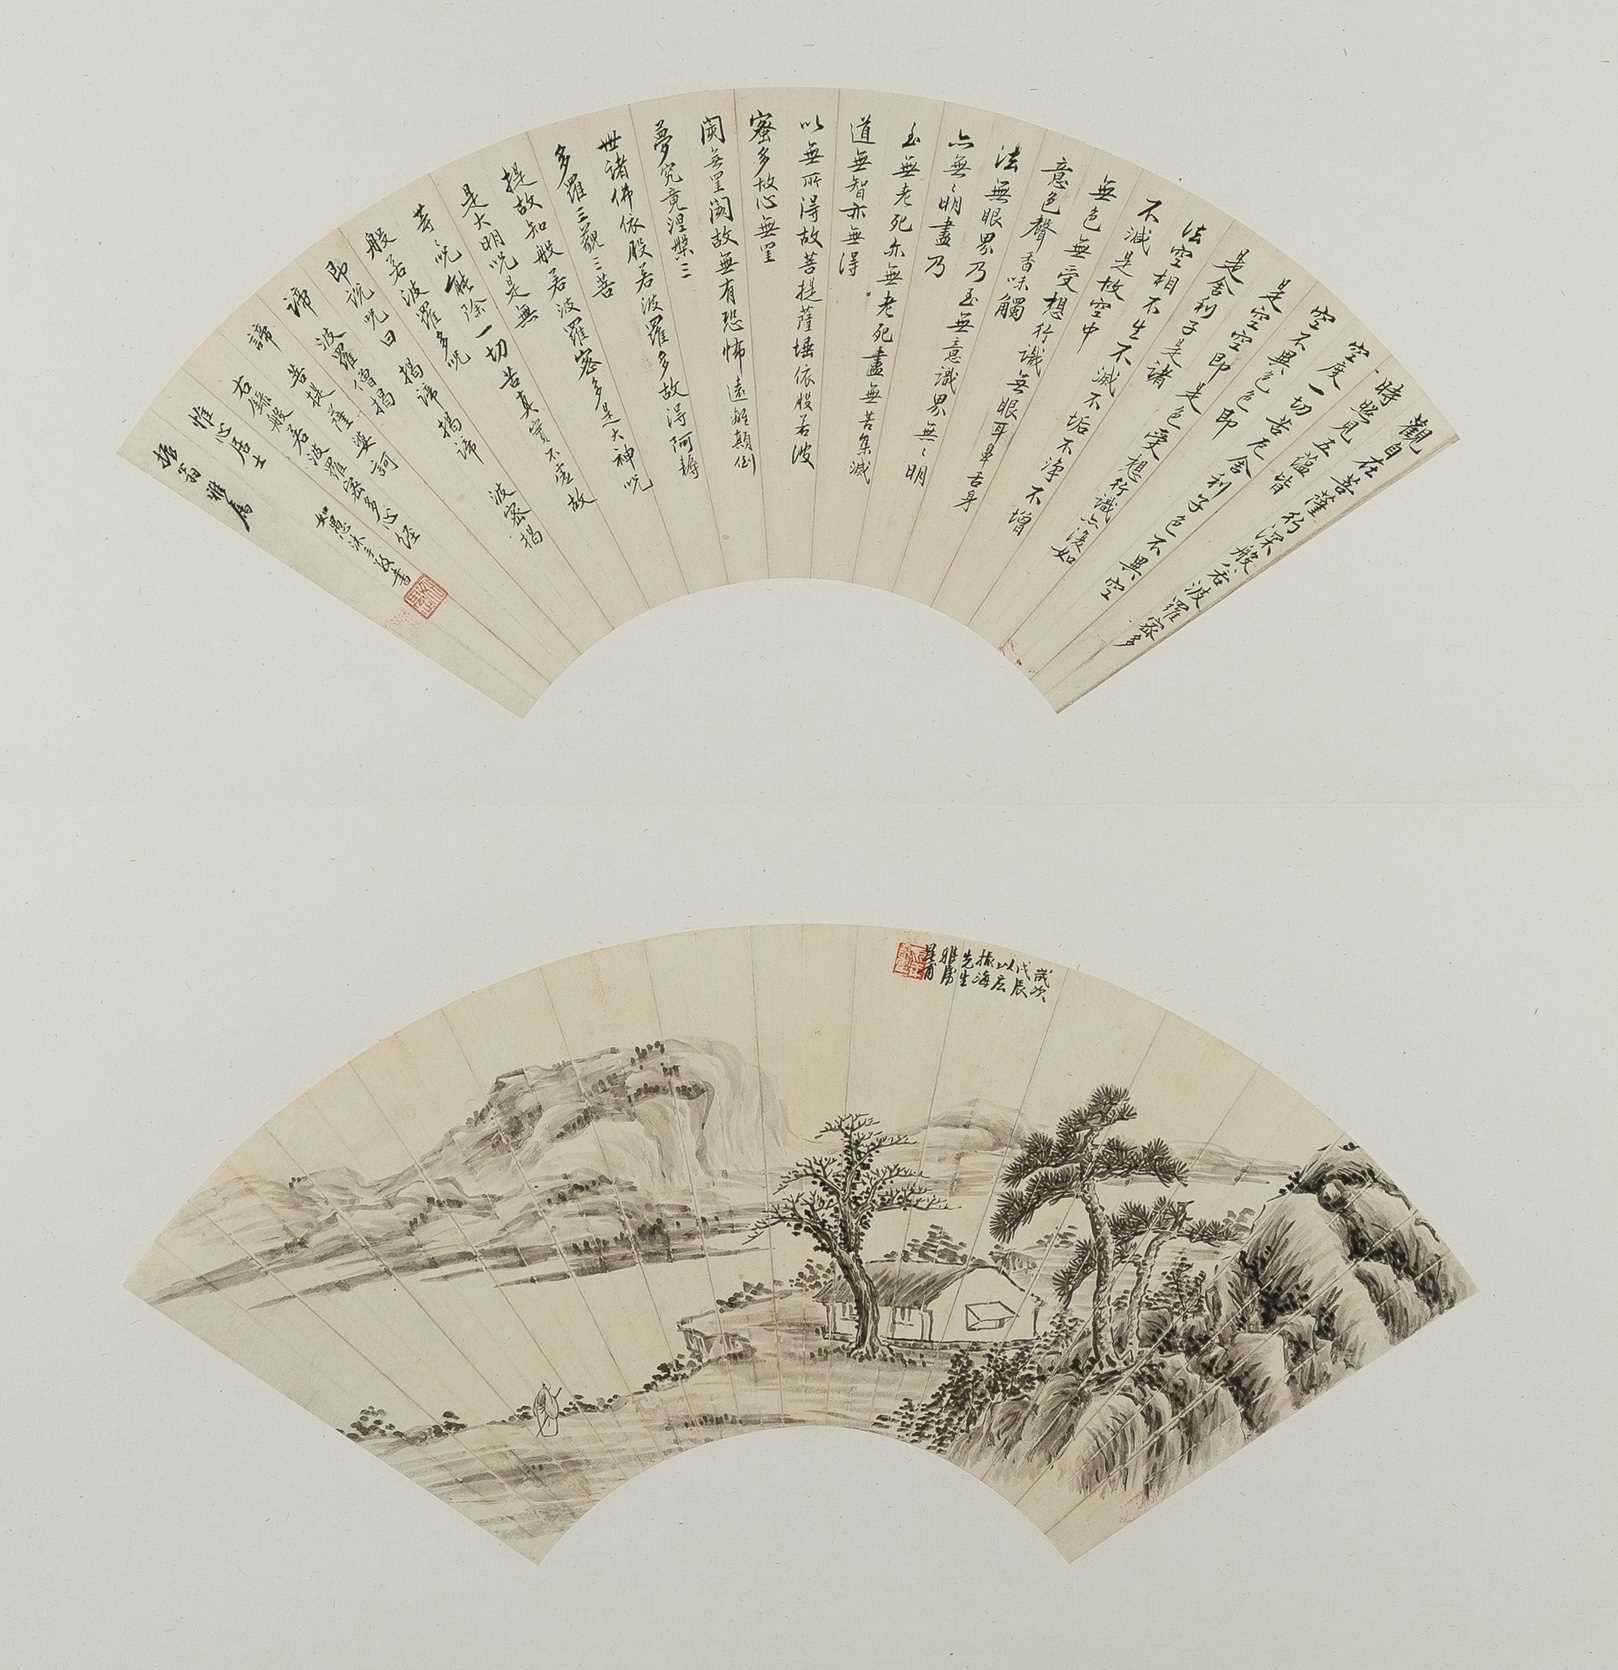 觀自在菩薩行深般若波羅密多
時照見五蘊皆
空度一切苦厄舍利子色不異空
空不異色色即
是空空即是色受想行識亦復如
是舍利子是諸
法空相不生不滅不垢不淨不增
不減是故空中
無色無受想行識無眼耳鼻舌身
意色聲香味觸
法無眼界乃至無意識界無〻明
亦無〻明盡乃
至無老死亦無老死盡無苦集滅
道無智亦無得
以無所得故菩提薩埵依般若波
蜜多故心無罣
閡無罣閡故無有恐怖遠離顛倒
夢究竟涅槃三
世諸佛依般若波羅多故得阿耨
多羅三藐三菩
提故知般若波羅密多是大神咒
是大明咒是無
等咒能除一切苦真實不虛故
般若波羅多咒
即說咒曰 揭諦揭諦 波密揭
諦 波羅僧揭
諦 菩提薩婆訶
右錄般若波羅密多心經
惟心居士
振翁雅屬
歲次
戊辰
以应
振海
先生
雅屬